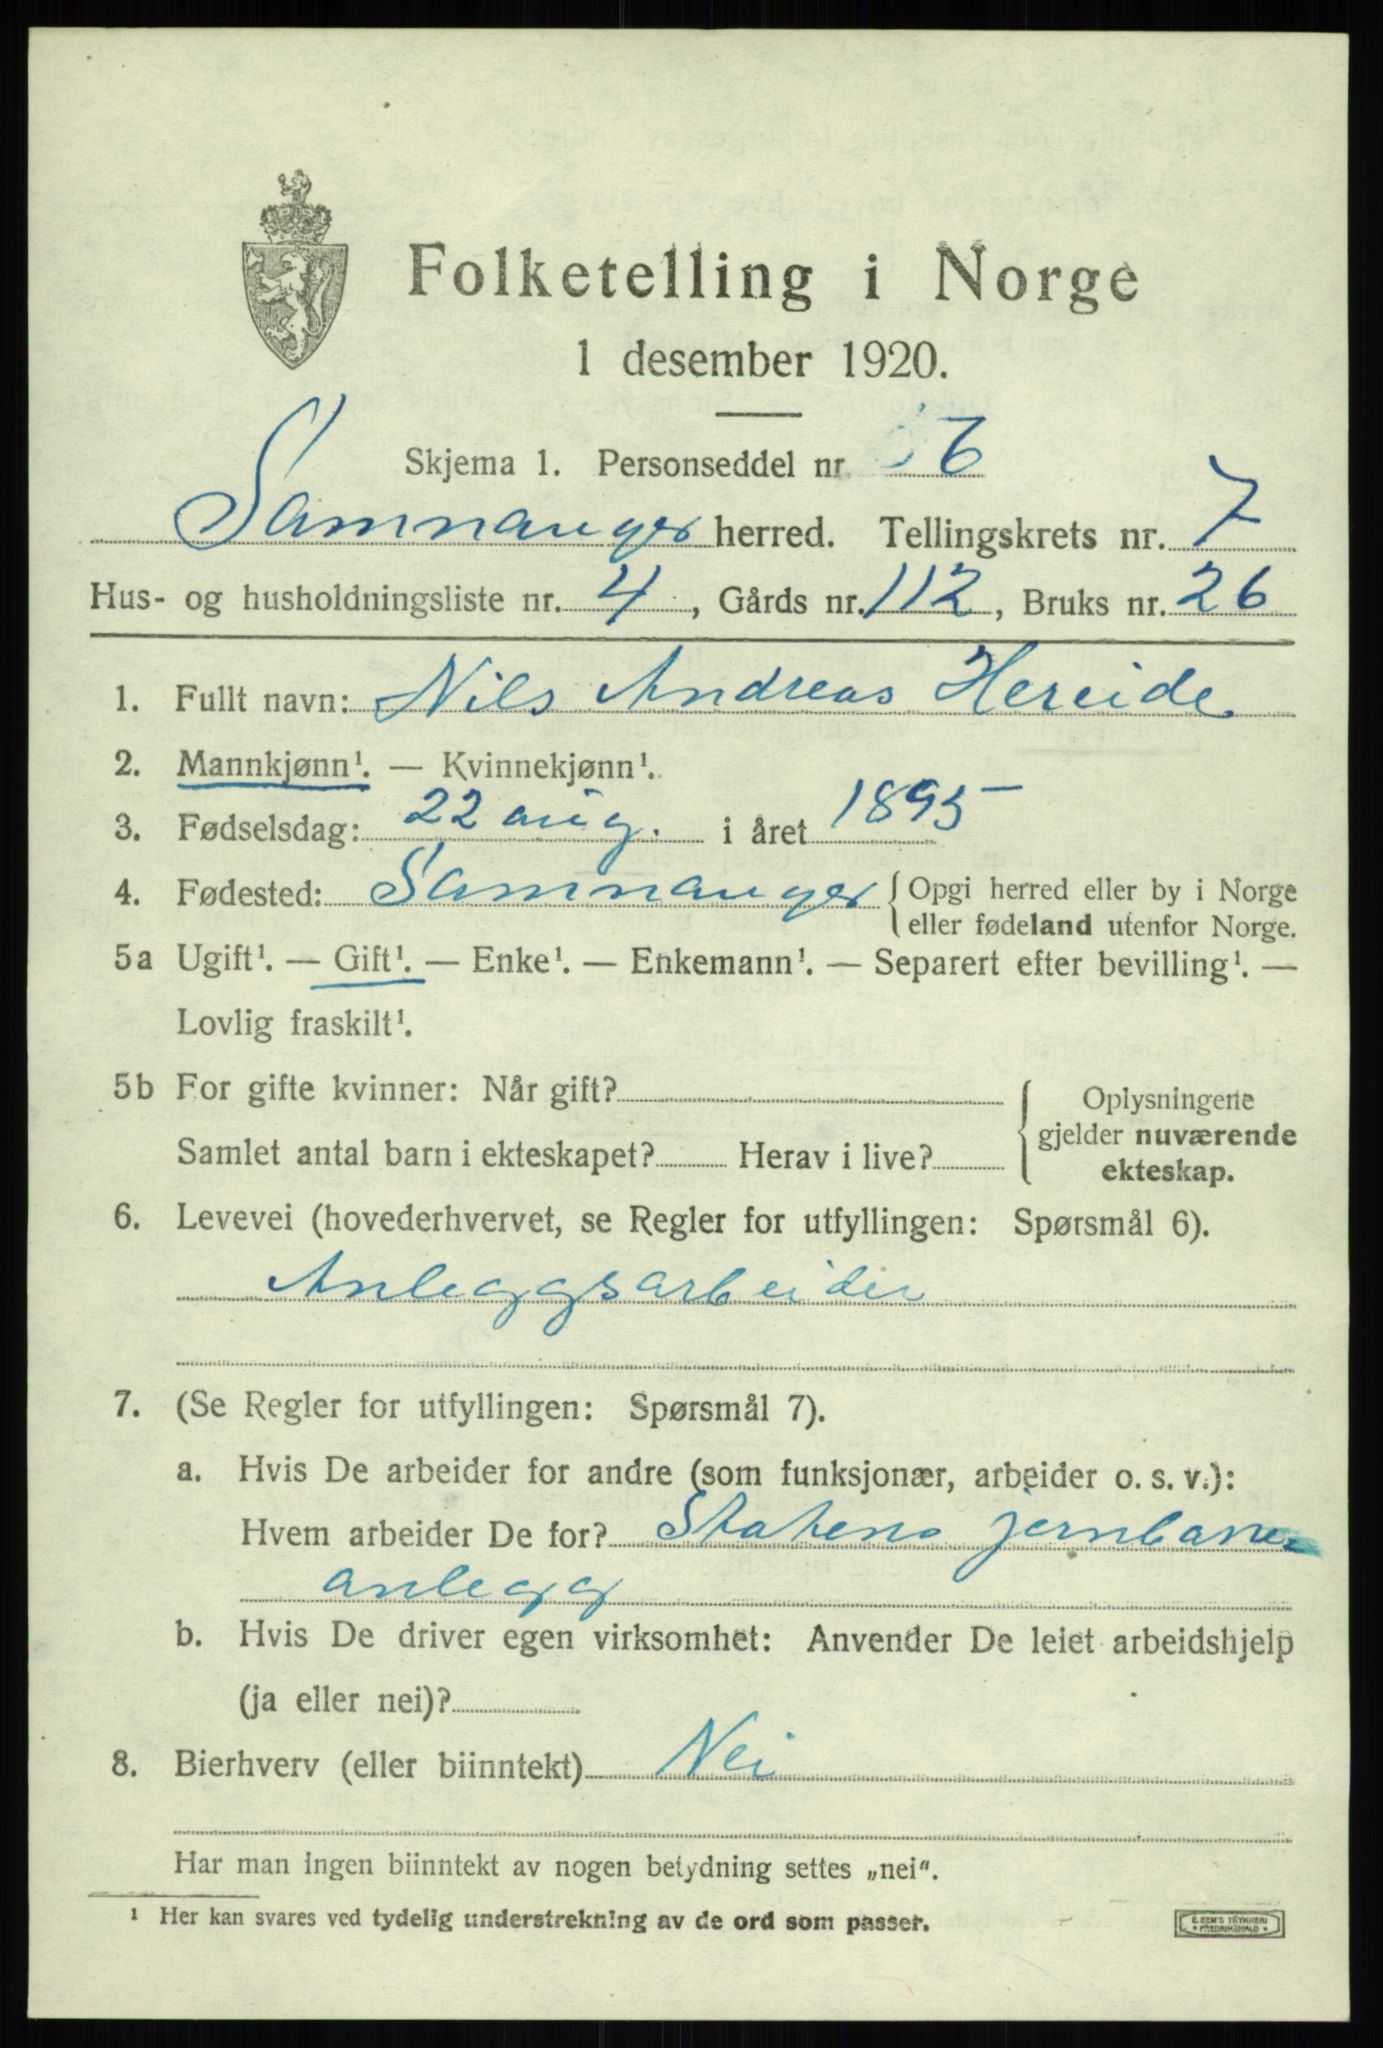 Folketelling i Norge
1 desember 1920.
Skjema 1. Personseddel nr 6
Samnanger herred. Tellingskrets nr. 7
Hus- og husholdningsliste nr. 4, Gårds nr. 112, Bruks nr. 26
1. Fullt navn: Nils Andreas Hereide
2. Mannkjønn¹. — Kvinnekjønn¹.
3. Fødselsdag: 22 aug. i året 1895
4. Fødested: Samnanger { Opgi herred eller by i Norge
eller fødeland utenfor Norge.
5a Ugift¹. — Gift¹. — Enke¹. — Enkemann¹. — Separert efter bevilling¹. —
Lovlig fraskilt¹.
5b For gifte kvinner: Når gift? { Oplysningene
gjelder nuværende
Samlet antal barn i ekteskapet? Herav i live?
ekteskap.
6. Levevei (hovederhvervet, se Regler for utfyllingen: Spørsmål 6).
Anleggsarbeider
7. (Se Regler for utfyllingen: Spørsmål 7).
a. Hvis De arbeider for andre (som funksjonær, arbeider o. s. v.):
Hvem arbeider De for? Statens jernbane-
anlegg
b. Hvis De driver egen virksomhet: Anvender De leiet arbeidshjelp
(ja eller nei)?
8. Bierhverv (eller biinntekt) Nei
Har man ingen biinntekt av nogen betydning settes „nei“.
¹ Her kan svares ved tydelig understrekning av de ord som passer.
E. SEM'S TRYKKERI
* FREDRIKSHALD *